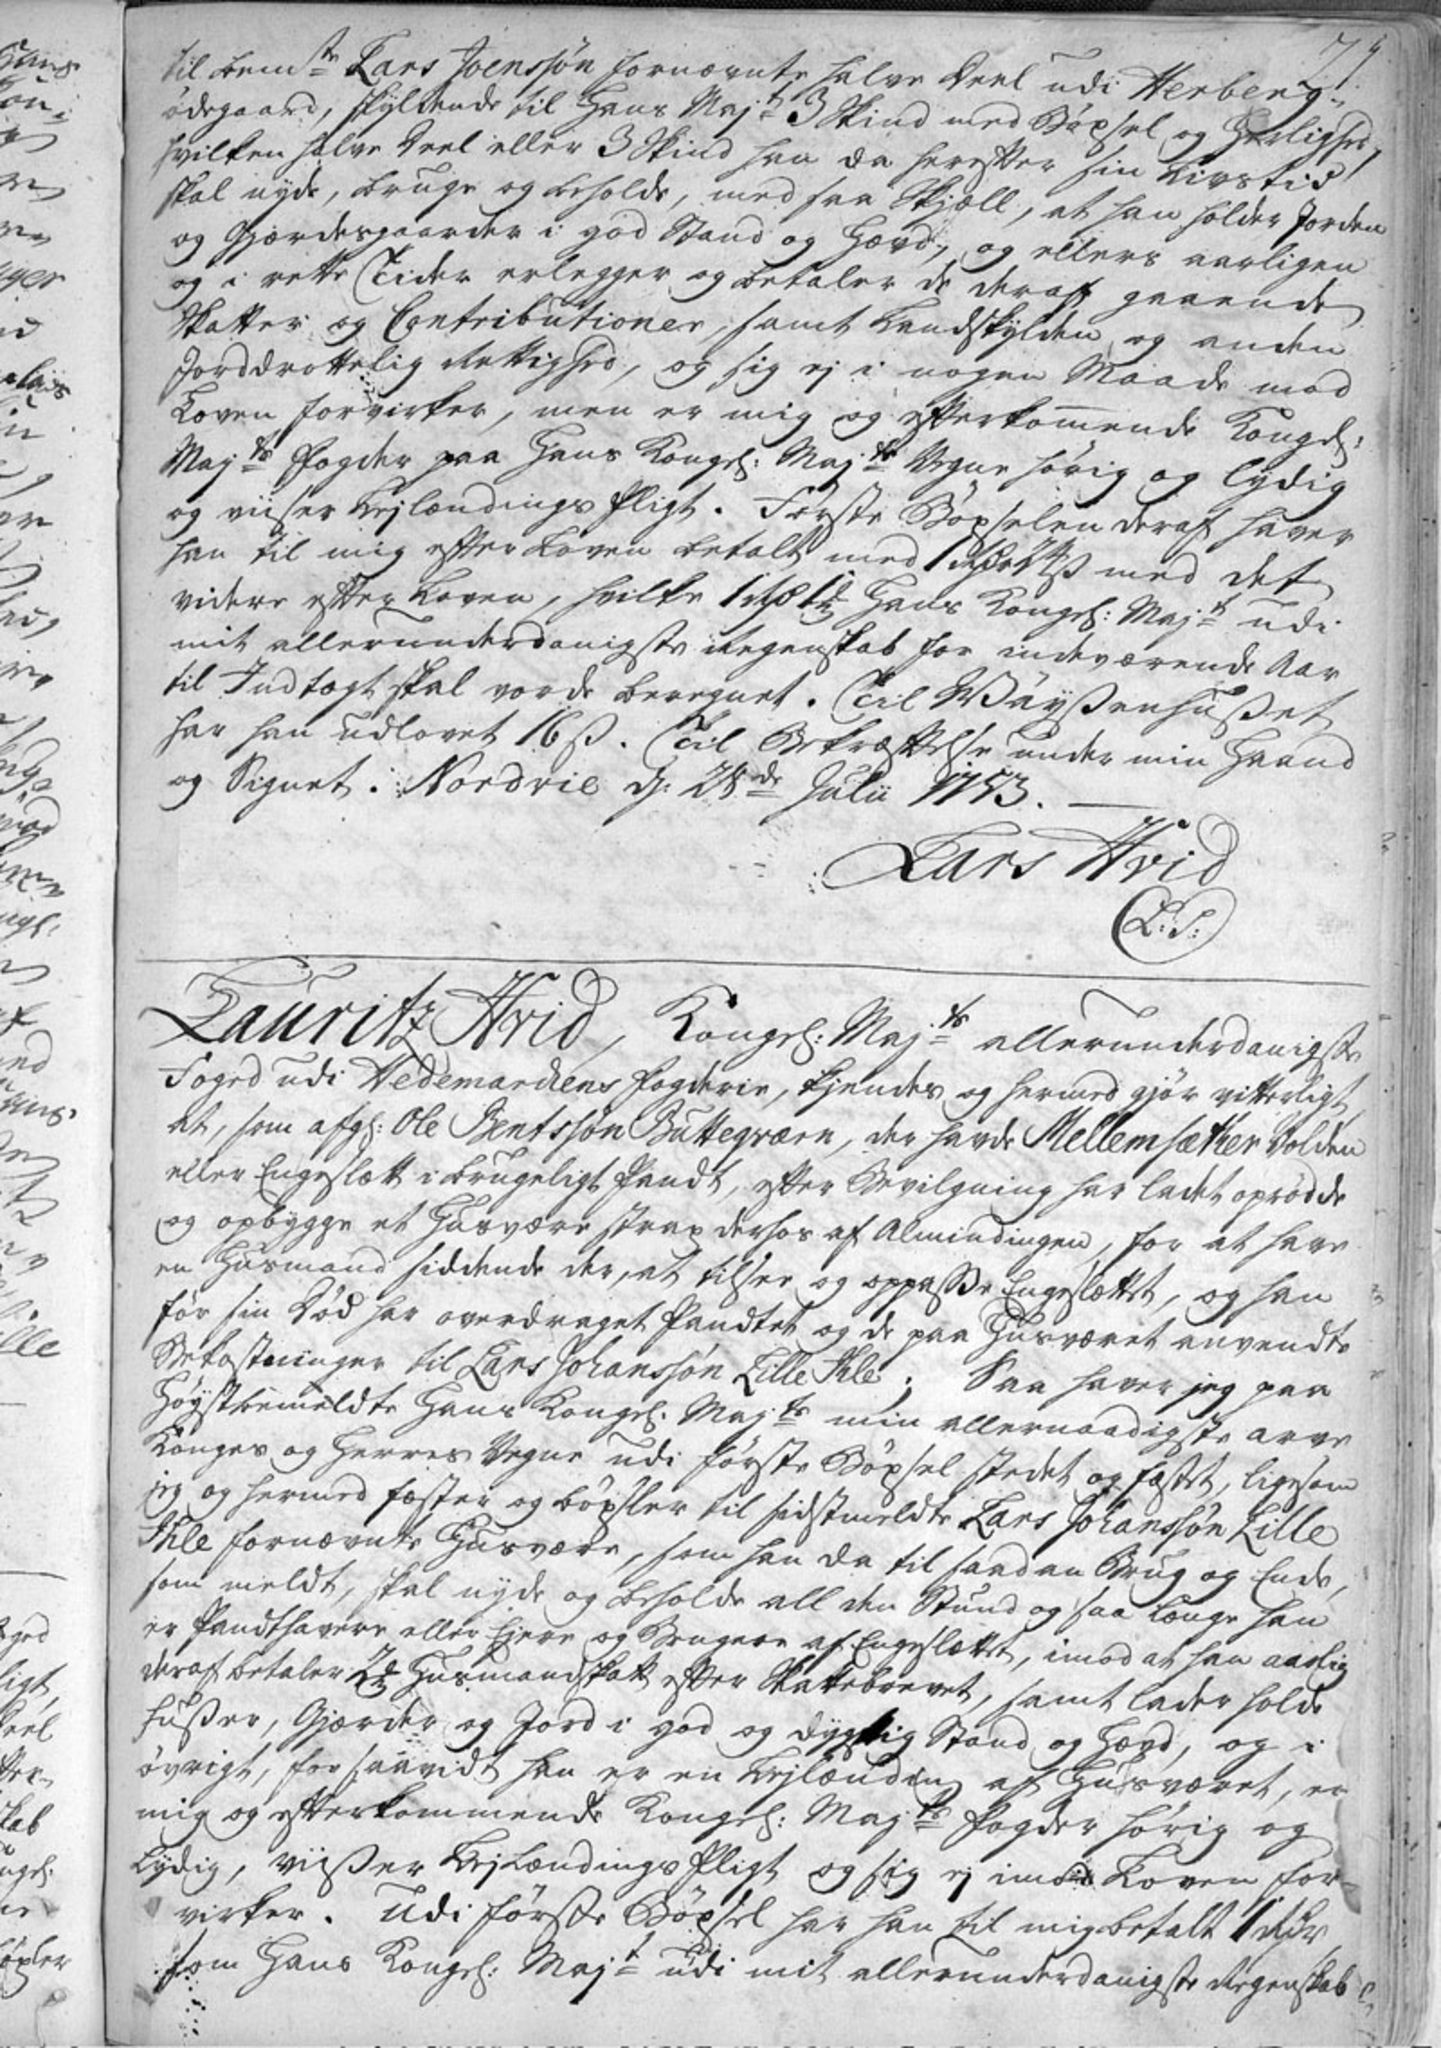 til bemte Lars Joenssøn fornævnte halve Deel udi Herberg-
ødegaard, skyldende til Hans Majt 3 Skind med Bøxsel og Herlighed,
hvilken halve Deel eller 3 Skind han da herefter sin Livstid
skal nyde, bruge og beholde, med saa Skjæll, at han holder Jorden
og Gjærdesgaarder i god Stand og Hævd, og ellers aarligen
og i rette Tider erlegger og betaler de deraf gaaende
Skatter og Contributioner, samt Landskylden og anden
Jorddrottelig Rettighed, og sig ej i nogen Maade mod
Loven forvirker, men er mig og efterkommende Kongel:
Majts Fogder paa Hans Kongel: Majts Vegne hørig og lydig
og viiser Lejlændings Pligt. Første Bøxselen deraf haver
han til mig efter Loven betalt med 1 Rdr med det
videre efter Loven, hvilke Hans Kongel: Majt udi
mit allerunderdanigste Regenskab for indeværende Aar
til Indtægt skal vorde beregnet. Til Wäysenhuset
har han udlovet 16 ß. Til Bekræftelse under min Haand
og Signet. Nordvie d: 28de Julii 1753.
Lars Hvid
(L:S:)
Lauritz Hvid, Kongel: Majts allerunderdanigste
Foged udi Hedemarkens Fogderie, kjendes og hermed gjør vitterligt,
at, som afgl: Ole Bentssøn Buttegværn, der havde Mellemsæther Volden
eller Engeslætt i brugeligt Pandt, efter Bevilgning har ladet oprødde
og opbygge et Husvære strax derhos af Almindingen, for at have
en Husmand siddende der, at tilsee og oppasse Engeslættet, og han
før sin Død har overdraget Pandtet og de paa Husværet anvendte
Bekostninger til Lars Johanssøn Lille Ihle; Saa haver jeg paa
Høystbemeldte Hans Kongel: Majts min allernaadigste arve
Konges og Herres Vegne udi første Bøxsel stedet og fæstet, ligesom
jeg og hermed fæster og bøxler til sidstmeldte Lars Johanssøn Lille
Ihle fornævnte Husvære, som han da til saadan Brug og Ende,
som meldt, skal nyde og beholde all den Stund og saa længe han
er Pandthavere eller Ejere og Brugere af Engeslættet, imod at han aarlig
deraf betaler Husmandskatt efter Skattebrevet, samt lader holde
Husser, Gjærder og Jord i god og dygtig Stand og Hævd, og i
øvrigt, forsaavidt han er en Lejlænding af Husværet, er
mig og efterkommende Kongel: Majts Fogder hørig og
lydig, viisser Lejlændings Pligt og sig ej imod Loven for-
virker. Udi første Bøxsel har han til mig betalt 1 Rdr,
som Hans Kongel: Majt udi mit allerunderdanigste Regenskab